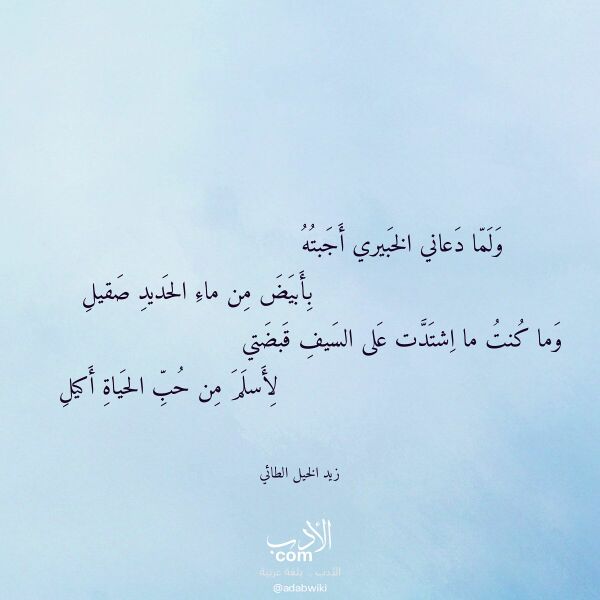 وَلَمّا دَعاني الخَبيري أَجَبتُهُ
بِأَبيَضَ مِن ماءِ الحَديدِ صَقيلِ
وَما كُنتُ ما اِشتَدَّت عَلى السَيفِ قَبضَتي
لِأَسلَمَ مِن حُبِّ الحَياةِ أَكيلِ
زيد الخيل الطائي
الأدب
com
الأدب .. بلغة عربية
@adabwiki